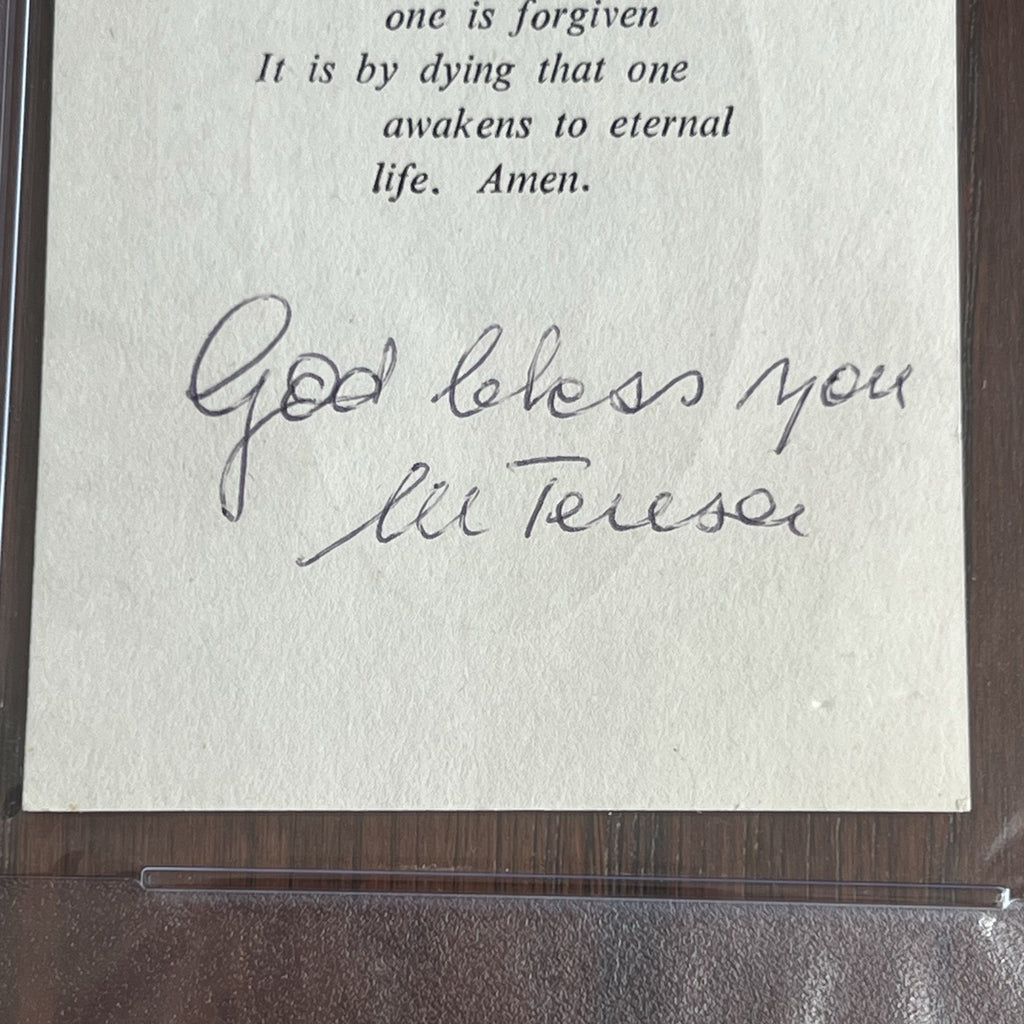 one is forgiven
It is by dying that one
awakens to eternal
life. Amen.
God bless you
M Teresa